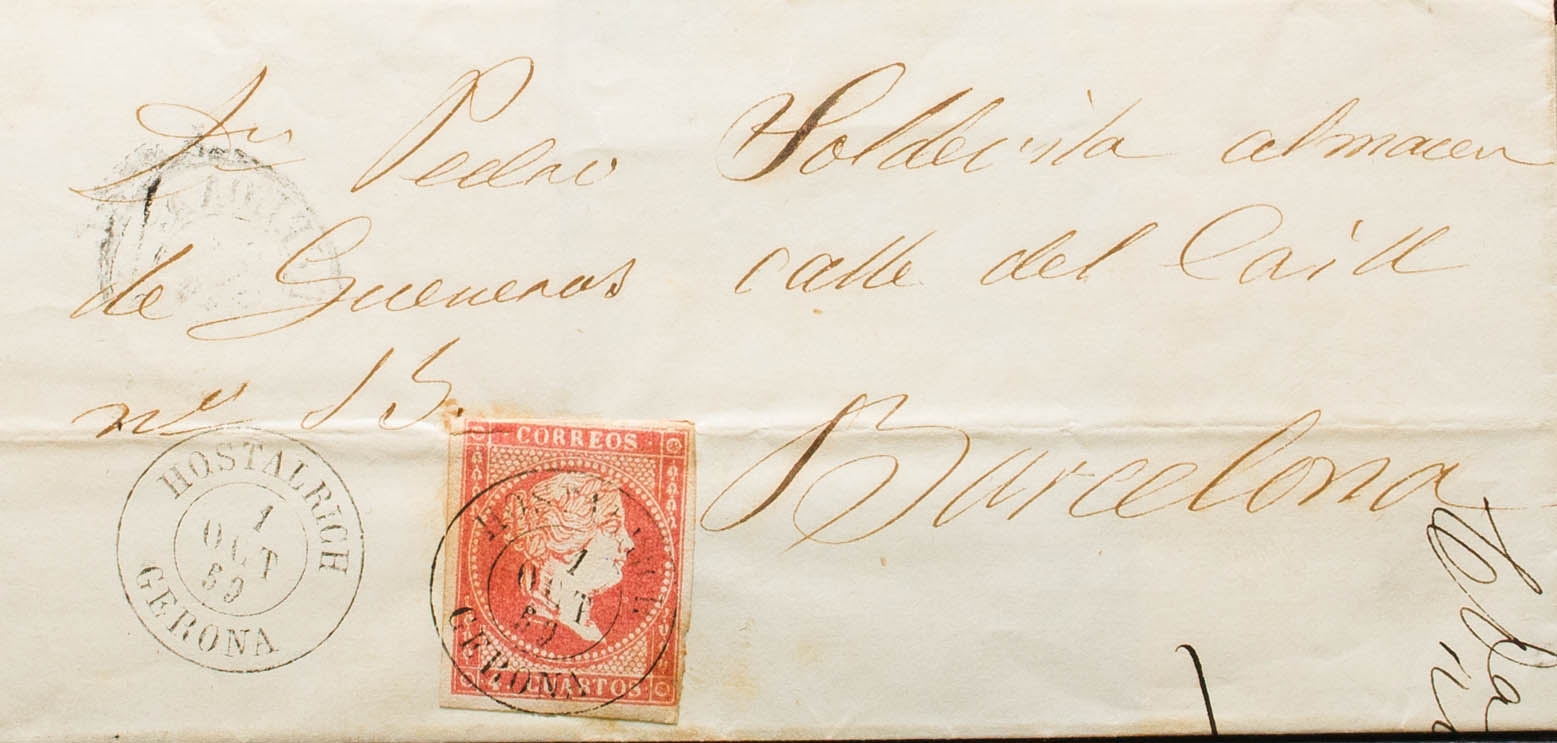 Sr Pedro Soldevila almacen
de Gueneros calle del Call
nº 15.
Barcelona
HOSTALRICH
1
OCT
59
GERONA
CORREOS
HOSTALRICH
1
OCT
59
GERONA
4 CUARTOS